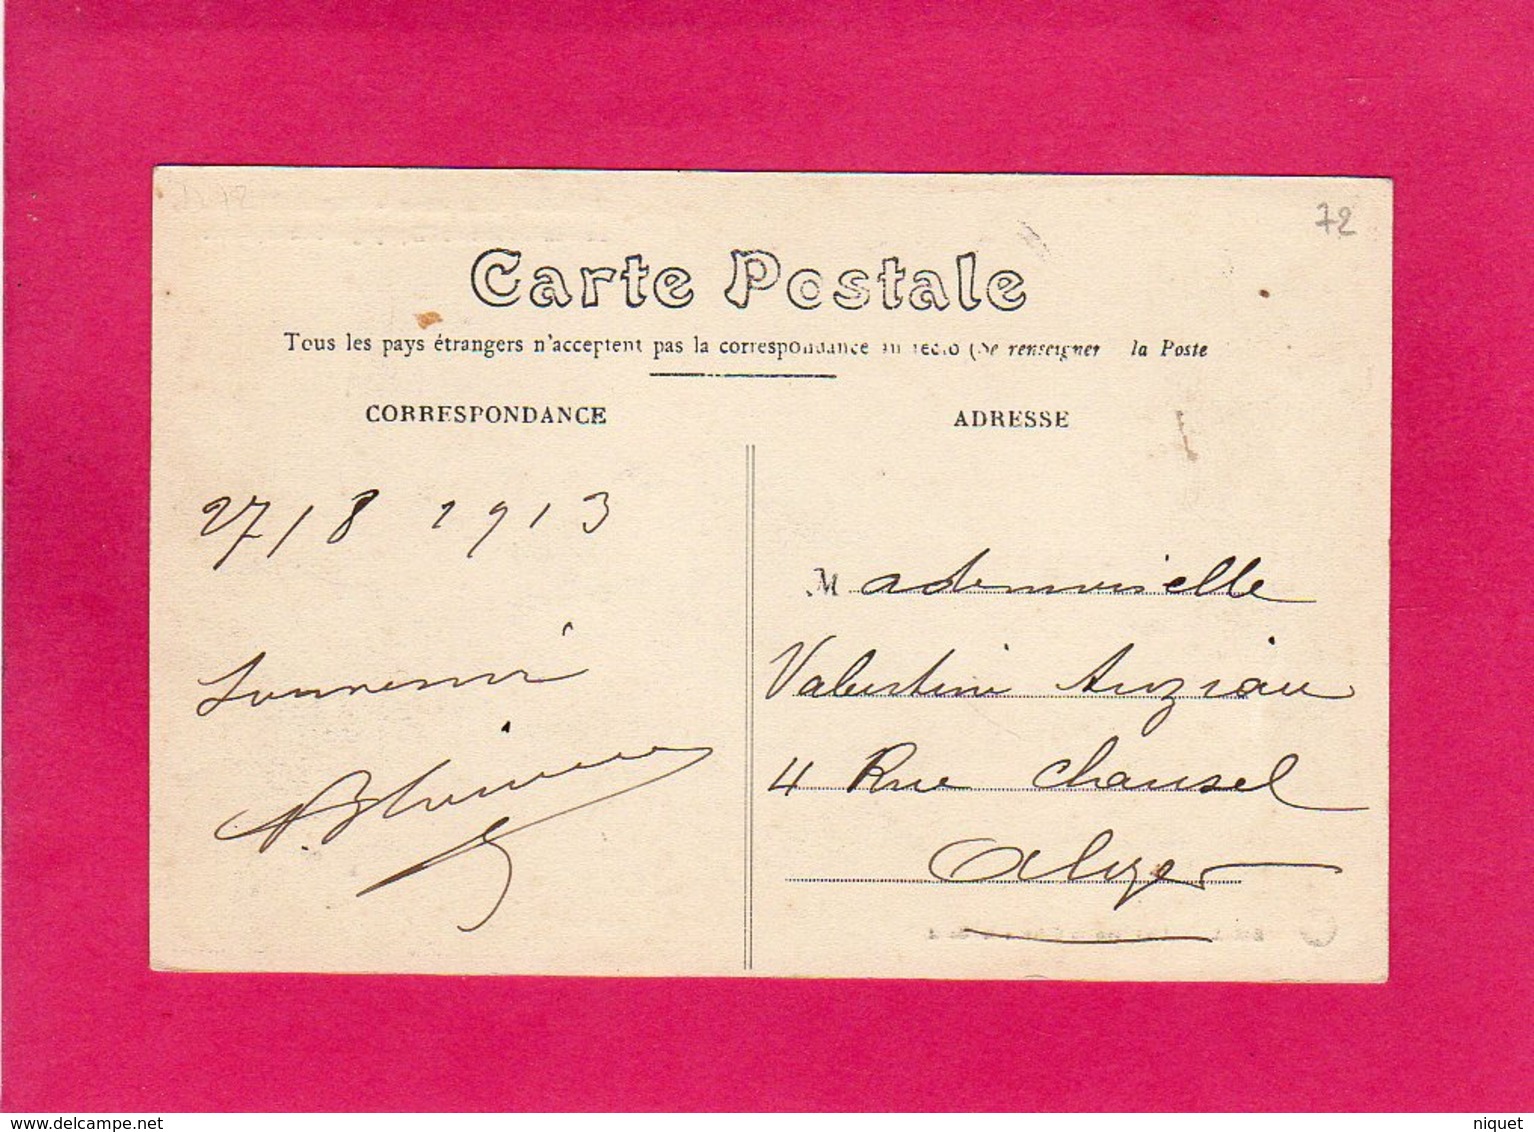 72
Carte Postale
Tous les pays étrangers n'acceptent pas la correspondance au recto (Se renseigner la Poste
CORRESPONDANCE
ADRESSE
27/8 1913
Mademoiselle
Souvenir
Valentine Auziau
4 Rue Chansel
Alger
www.delcampe.net
niquet